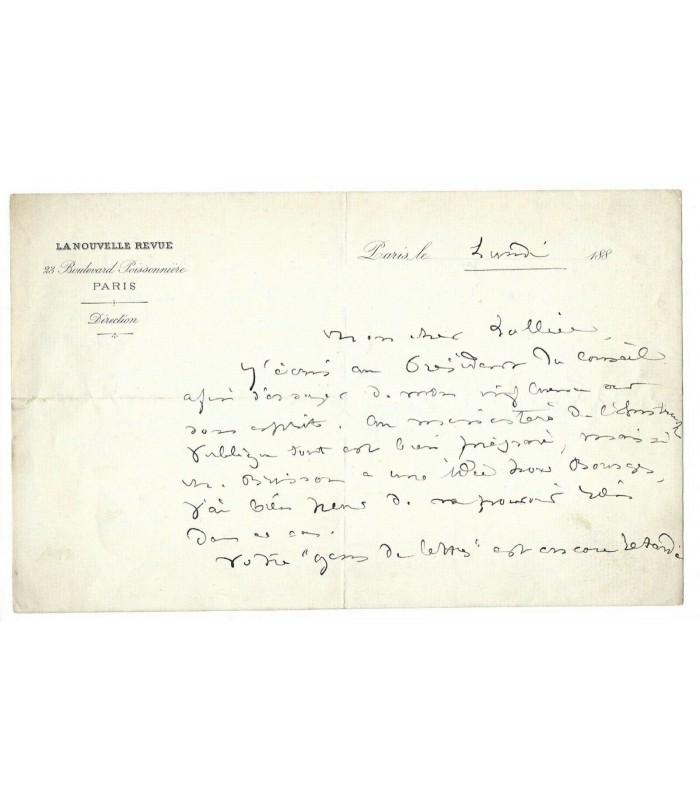 LA NOUVELLE REVUE
23 Boulevard Poissonnière
PARIS
Direction
Paris, le Lundi 188
Mon cher
J'écris au Président du Conseil
afin d'essayer de mon
sans esprits. Au ministère de l'Instruct
Publique tout est bien préparé, mais si
M. Brisson a une idée pour Bourges,
j'ai bien peur de ne pouvoir rien
dans ce cas.
Votre "gens de lettres" est encore retardé